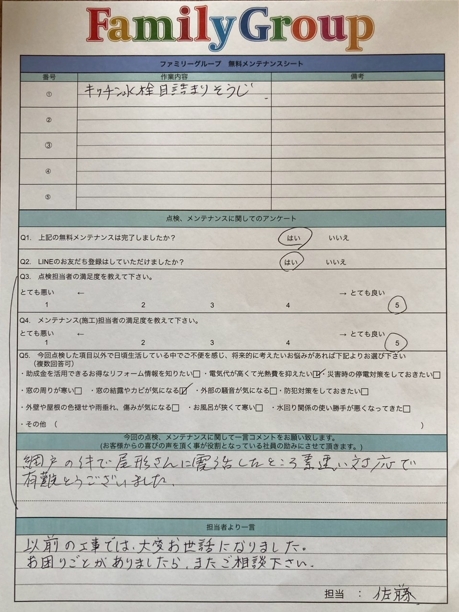 FamilyGroup
ファミリーグループ 無料メンテナンスシート
番号 作業内容 備考
① キッチン水栓目詰まりそうじ
②
③
④
⑤
点検、メンテナンスに関してのアンケート
Q1. 上記の無料メンテナンスは完了しましたか? はい いいえ
Q2. LINEのお友だち登録はしていただけましたか? はい いいえ
Q3. 点検担当者の満足度を教えて下さい。
とても悪い ← → とても良い
1 2 3 4 5
Q4. メンテナンス(施工)担当者の満足度を教えて下さい。
とても悪い ← → とても良い
1 2 3 4 5
Q5. 今回点検した項目以外で日頃生活している中でご不便を感じ、将来的に考えたいお悩みがあれば下記よりお選び下さい
(複数回答可)
・助成金を活用できるお得なリフォーム情報を知りたい□ ・電気代が高くて光熱費を抑えたい☑ ・災害時の停電対策をしておきたい□
・窓の周りが寒い□ ・窓の結露やカビが気になる☑ ・外部の騒音が気になる□ ・防犯対策をしておきたい□
・外壁や屋根の色褪せや雨垂れ、傷みが気になる□ ・お風呂が狭くて寒い□ ・水回り関係の使い勝手が悪くなってきた□
・その他 ( )
今回の点検、メンテナンスに関して一言コメントをお願い致します。
(お客様からの喜びの声を頂く事が役割となっている社員の励みにさせて頂きます。)
網戸の件で屋形さんに電話したところ素速い対応で
有難とうございました。
担当者より一言
以前の工事では、大変お世話になりました。
お困りごとがありましたら、またご相談下さい。
担当 : 佐藤